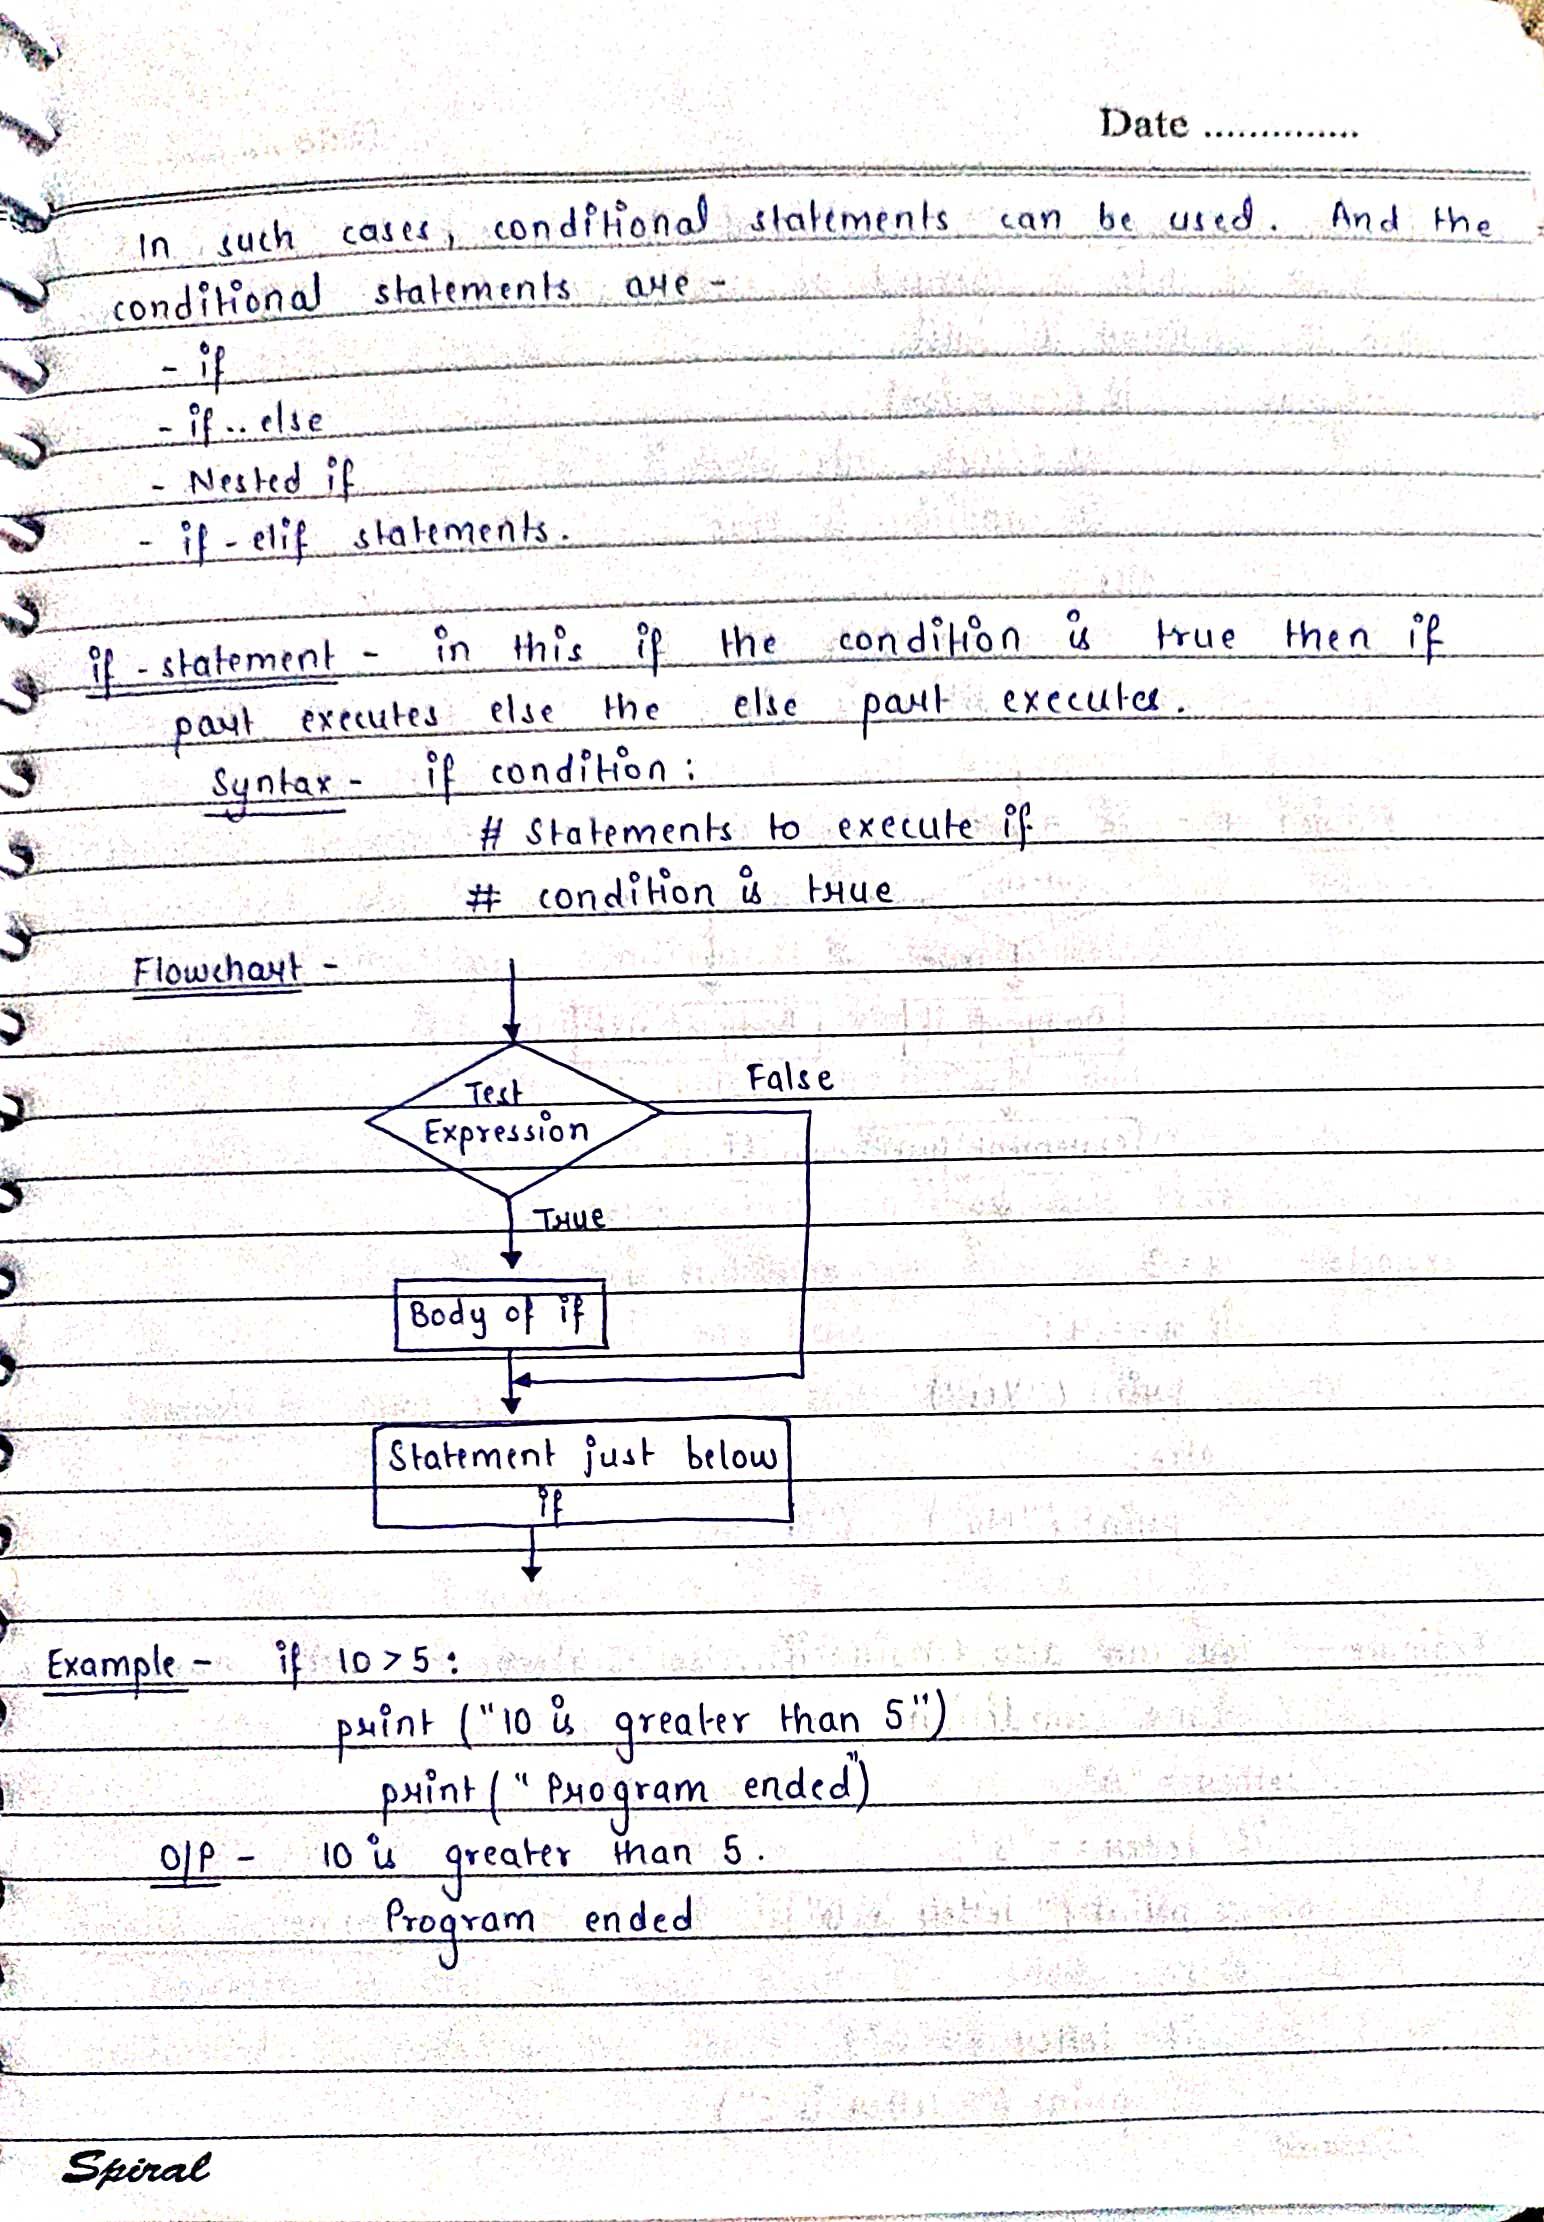 Date ..............
In such cases, conditional statements can be used. And the
conditional statements are -
- if
- if .. else
- Nested if
- if - elif statements.
if - statement - in this if the condition is true then if
part executes else the else part executes.
Syntax - if condition :
# Statements to execute if
# condition is true
Flowchart -
Test
Expression
False
True
Body of if
Statement just below
if
Example - if 10 > 5 :
print ("10 is greater than 5")
print (" Program ended")
O/P - 10 is greater than 5.
Program ended
Spiral